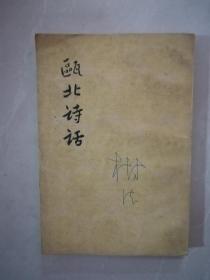 瓯北诗话
林